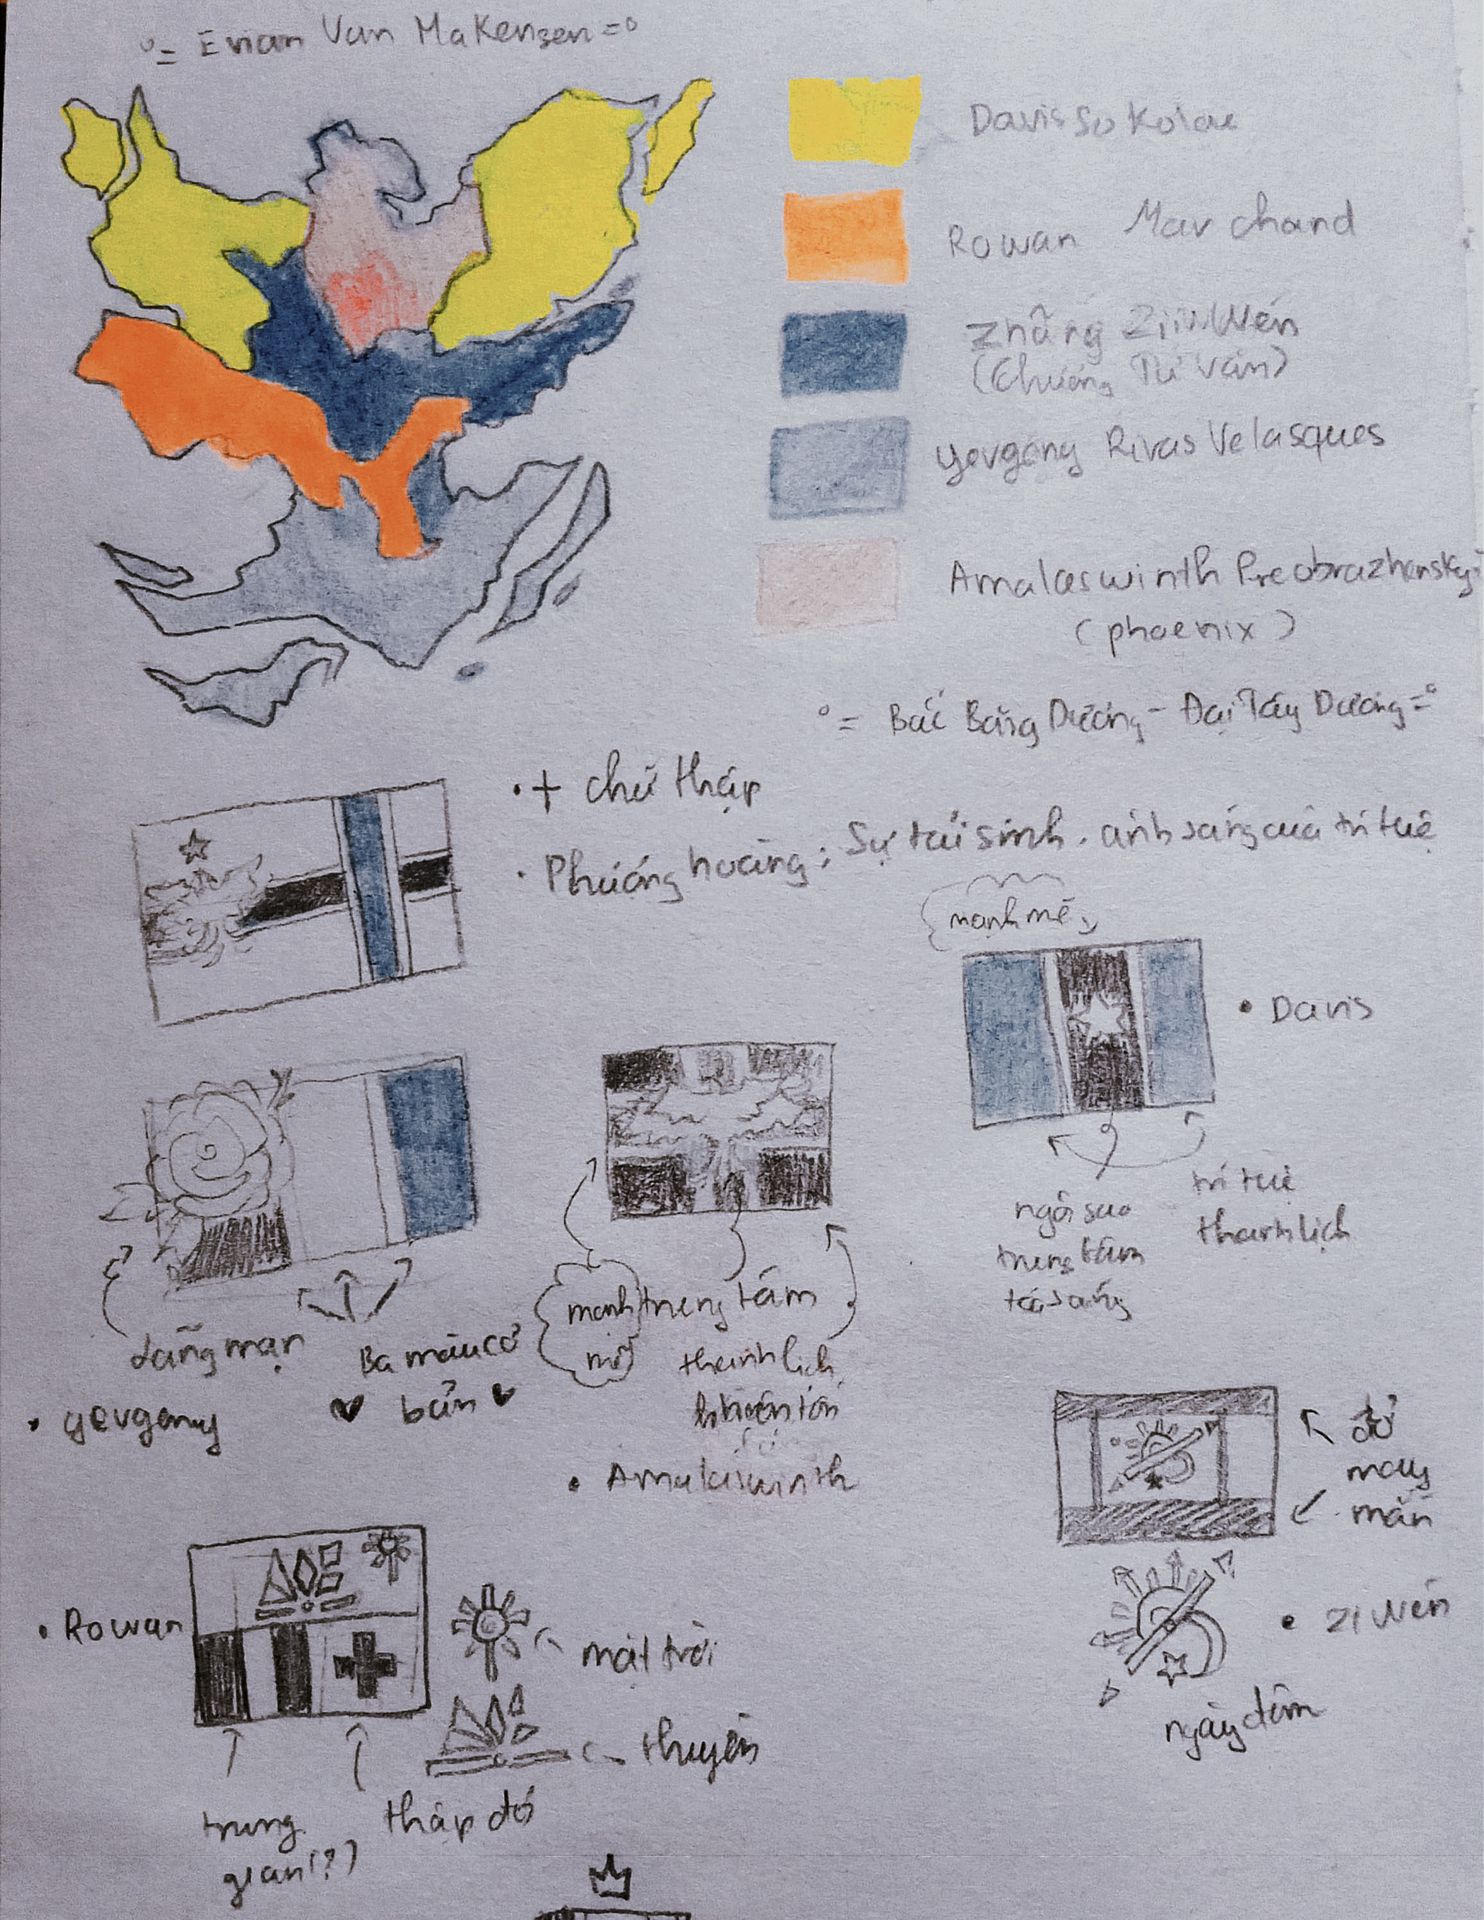 °= Evian Van Makensen =°
Davis So Kolov
Rowan Marchand
Zhāng Zǐ Wén
(Chương Tử Văn)
Yevgeny Rivas Velasques
Amalaswinth Preobrazhensky
(phoenix)
°= Bắc Băng Dương - Đại Tây Dương =°
• + chữ thập
• Phượng hoàng: Sự tái sinh. ánh sáng của trí tuệ
mạnh mẽ
• Davis
ngôi sao
trung tâm
toả sáng
trí tuệ
thanh lịch
lãng mạn
Ba màu cơ
bản
• Yevgeny
mạnh
mẽ
trung tâm
thanh lịch
• Amalaswinth
đỏ
may
mắn
• Rowan
mặt trời
thuyền
trung
gian(?)
thập đỏ
• Zi Wén
ngày đêm